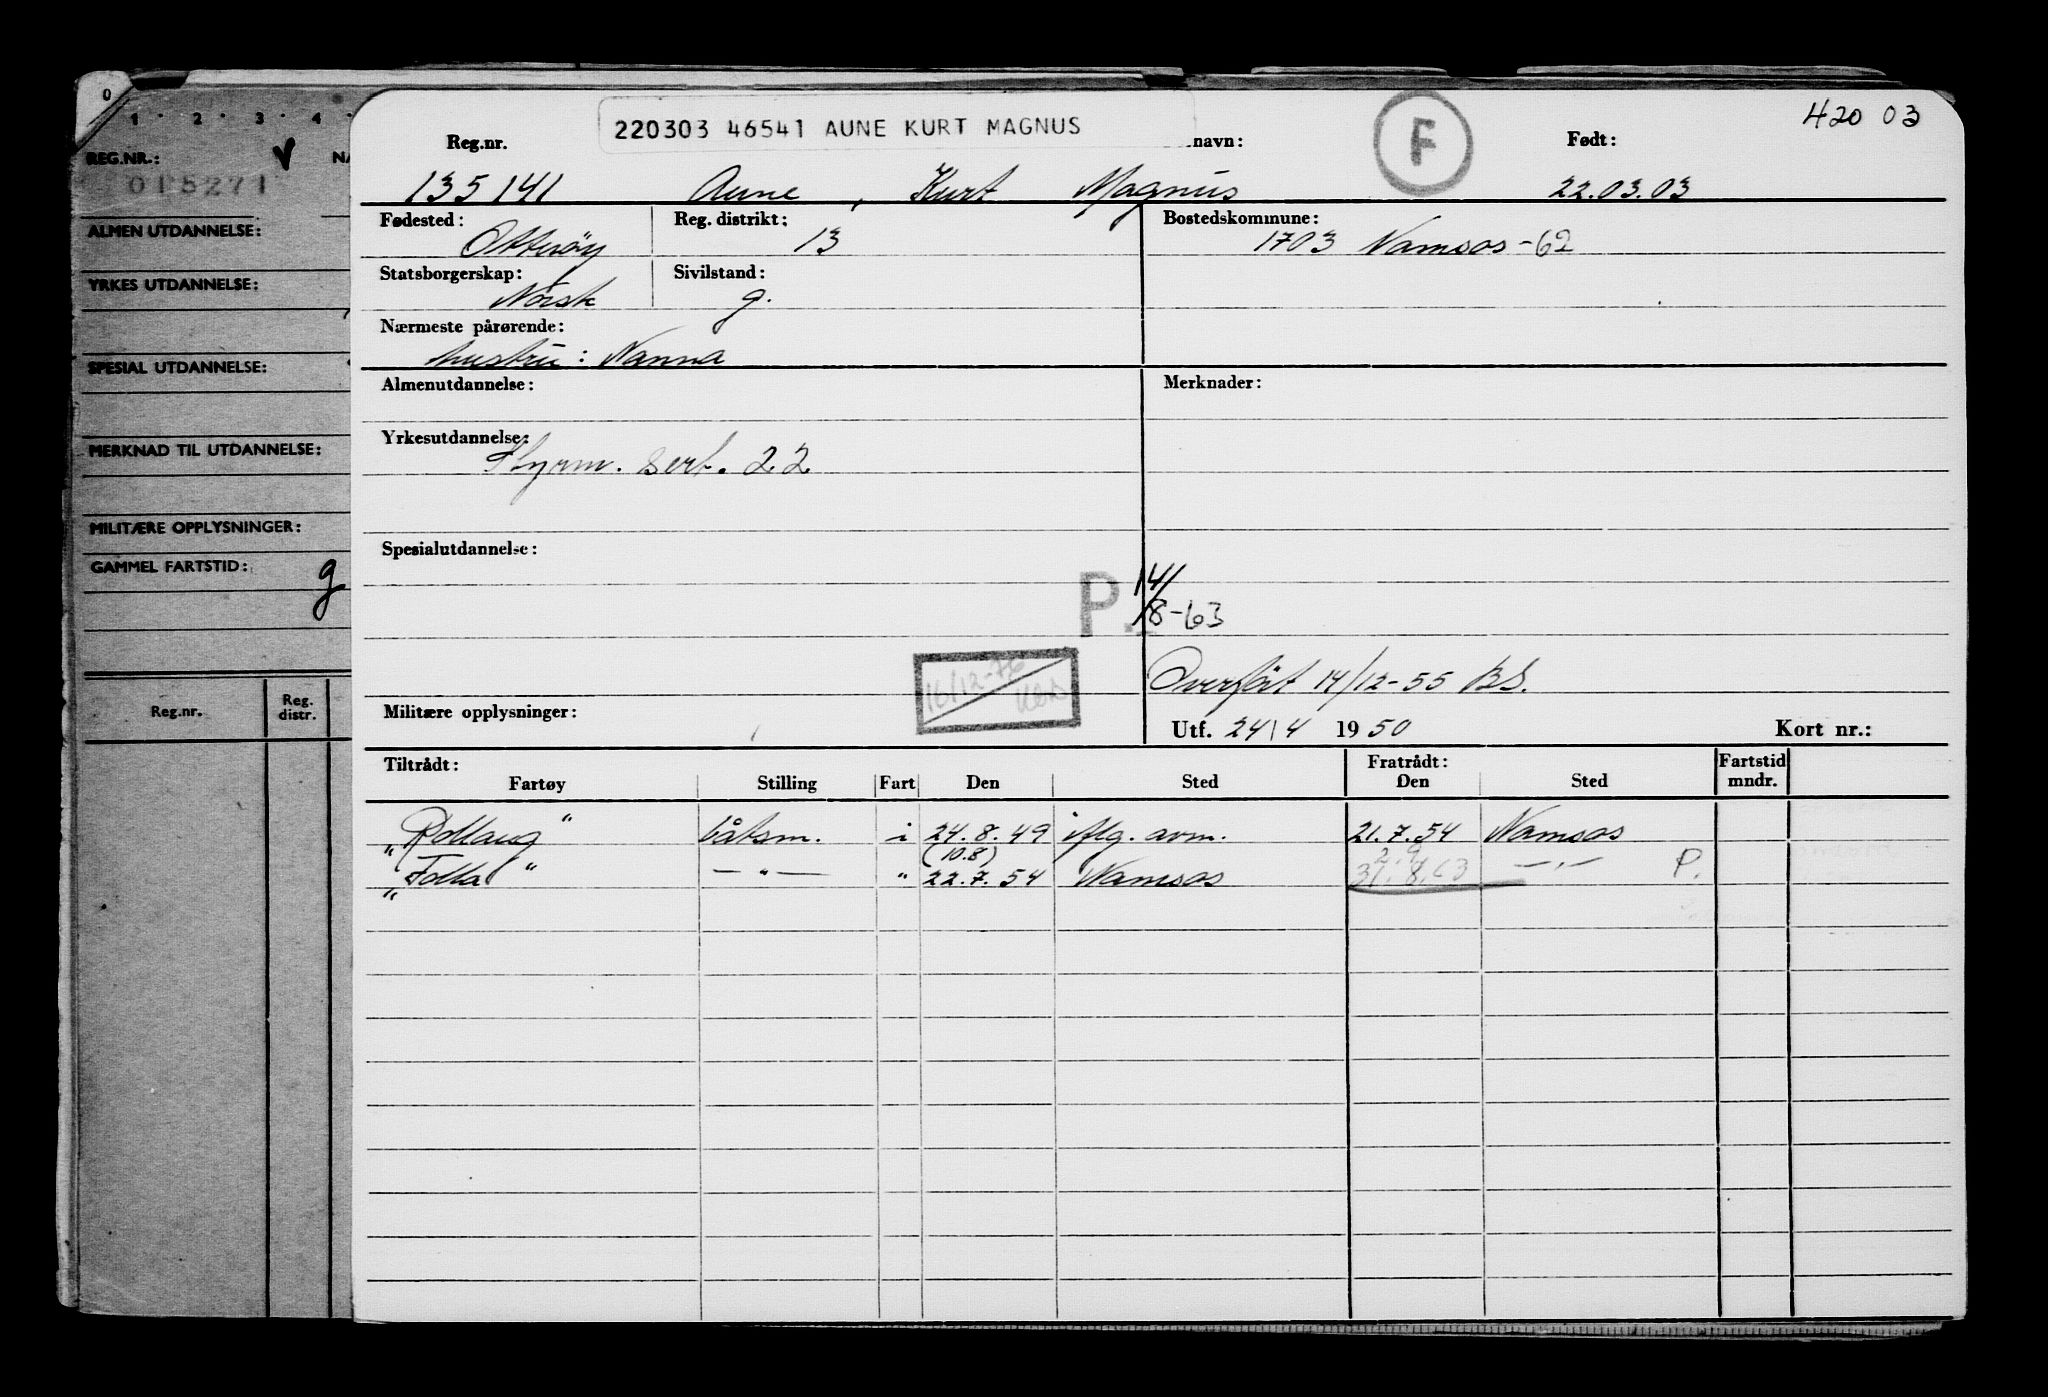 0
1 · 2 · 3 · 4 ·
REG.NR.: V NA
015271
ALMEN UTDANNELSE:
YRKES UTDANNELSE:
SPESIAL UTDANNELSE:
MERKNAD TIL UTDANNELSE:
MILITÆRE OPPLYSNINGER:
GAMMEL FARTSTID: g
Reg.nr. Reg. distr.
420 03
220303 46541 AUNE KURT MAGNUS
Reg.nr. navn: F Født:
135141 Aune, Kurt Magnus 22.03.03
Fødested: Reg. distrikt: Bostedskommune:
Otterøy 13 1703 Namsos-62
Statsborgerskap: Sivilstand:
Norsk g.
Nærmeste pårørende:
hustru: Nanna
Almenutdannelse: Merknader:
Yrkesutdannelse:
Styrm. sert. 22
Spesialutdannelse:
P. 14/8-63
16/12-76
Overført 14/12-55 BS.
Militære opplysninger: Utf. 24/4 1950 Kort nr.:
Tiltrådt: Fratrådt: Fartstid
Fartøy Stilling Fart Den Sted Den Sted mndr.
"Rollaug" båtsm. i 24.8.49 iflg. avm. 21.7.54 Namsos
(10.8) 2.9
"Folla" —"— " 22.7.54 Namsos 31.8.63 —"— P.